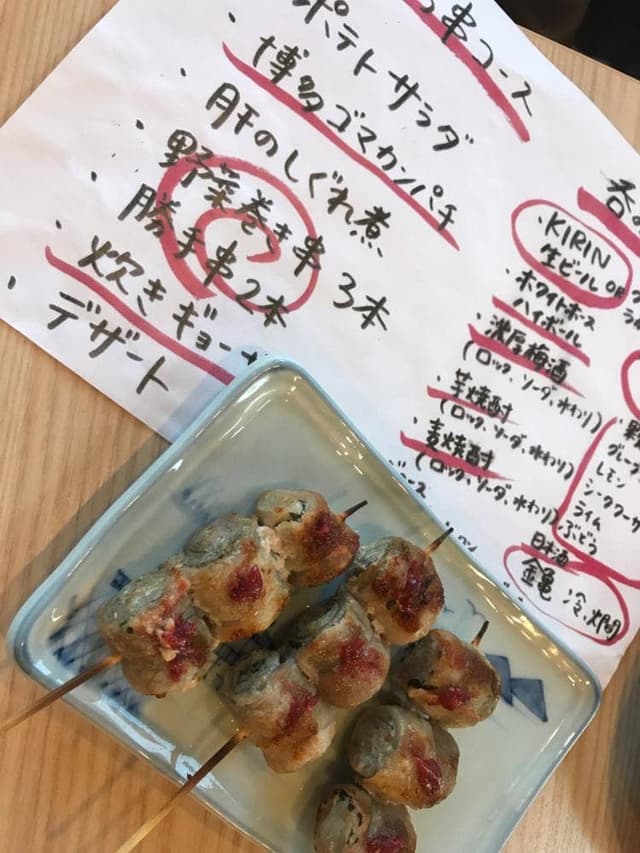 串コース
ポテトサラダ
・博多ゴマカンパチ
・肝のしぐれ煮
・野菜巻き串3本
勝手串2本
・炊きギョー
・デザート
呑
・KIRIN
生ビール OR
・ホワイトホース
ハイボール
・濃厚梅酒
(ロック、ソーダ、水わり)
・芋焼酎
(ロック、ソーダ、水わり)
・麦焼酎
(ロック、ソーダ、水わり)
レモン
シークワーサ
ライム
ぶどう
日本酒
金亀 冷、燗